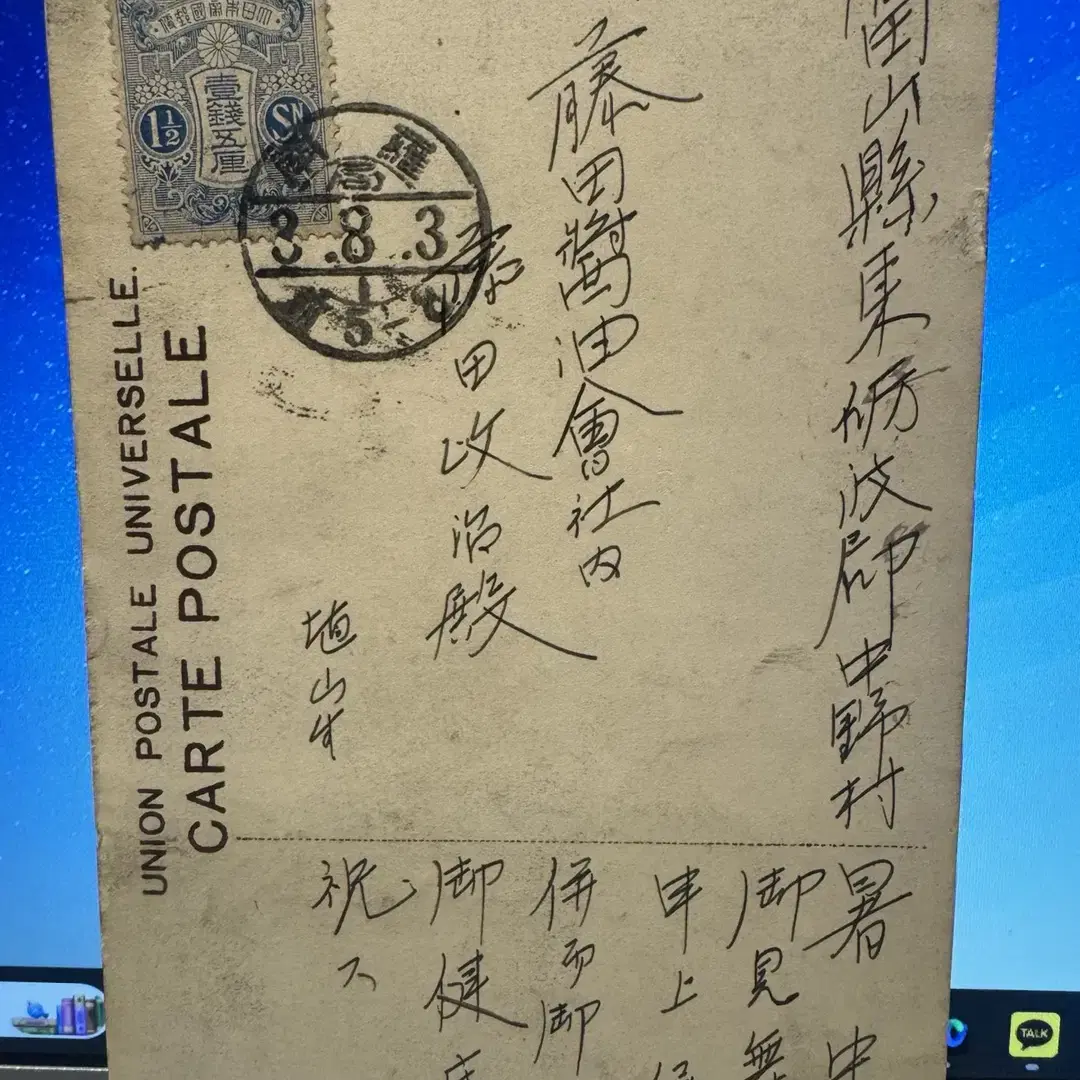 大日本帝國郵便
壹錢五厘
1½
SN
羅
3.8.3
UNION POSTALE UNIVERSELLE.
CARTE POSTALE
富山縣東礪波郡中野村
藤田醬油會社内
藤田政治殿
埴山生
暑中
御見無
申上
併而御
御健
祝ス
TALK